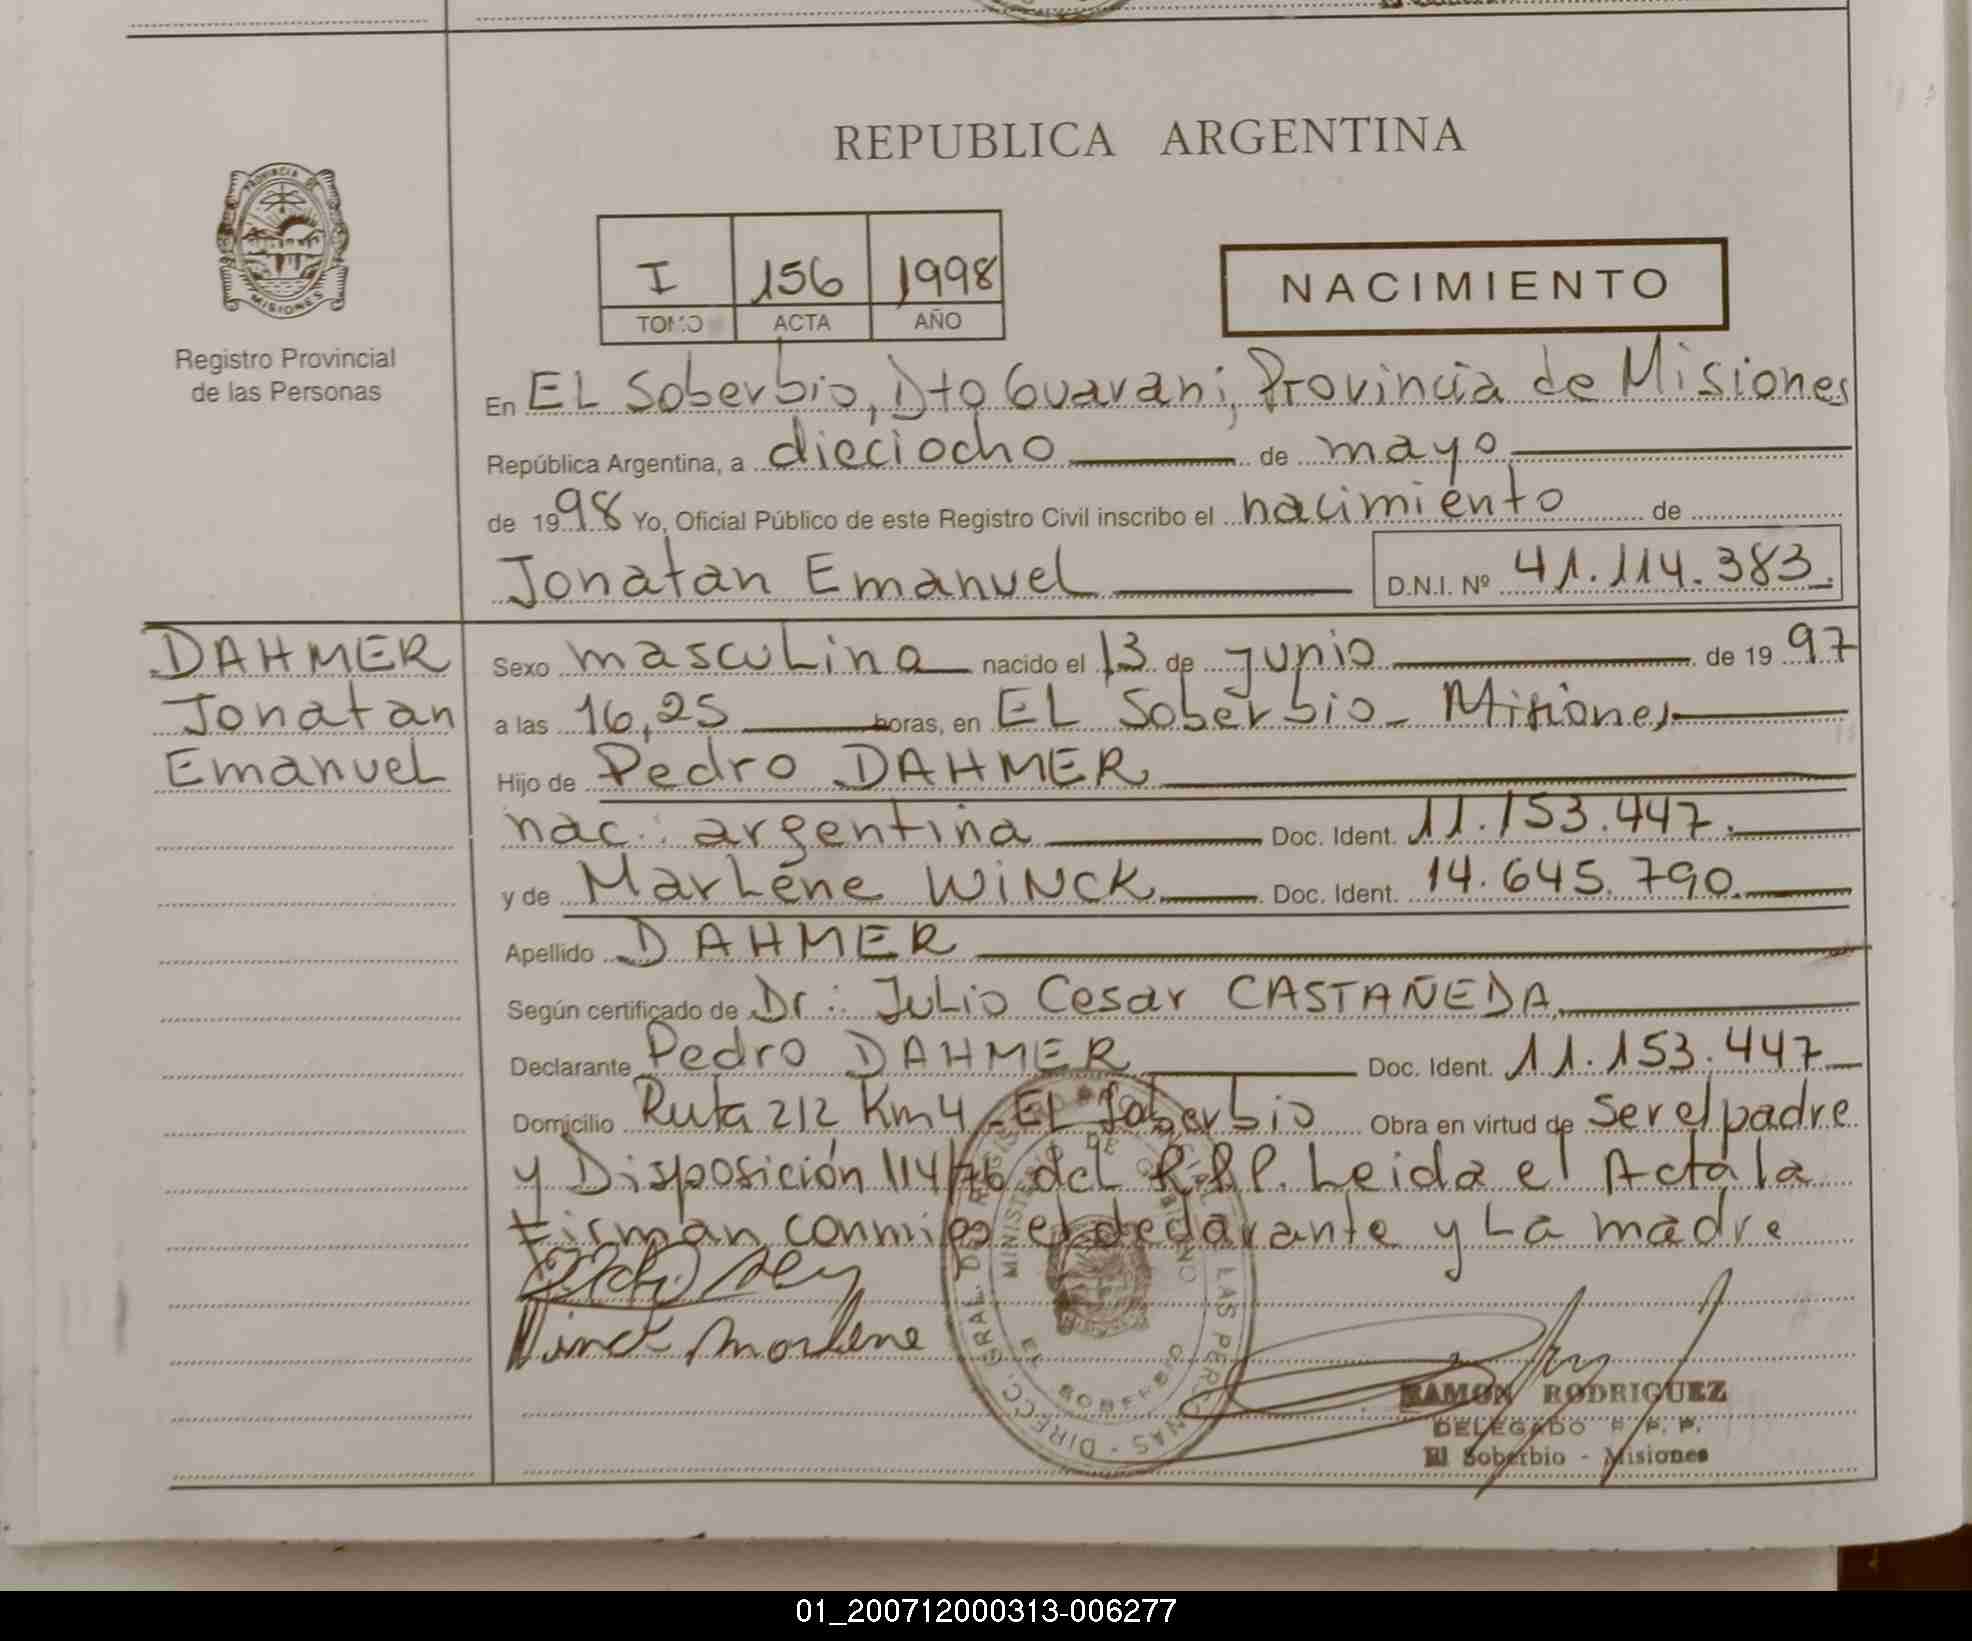 REPUBLICA ARGENTINA
PROVINCIA DE
MISIONES
Registro Provincial
de las Personas
I 156 1998
TOMO ACTA AÑO
NACIMIENTO
En EL Soberbio, Dto Guarani, Provincia de Misiones
República Argentina, a dieciocho de mayo
de 1998 Yo, Oficial Público de este Registro Civil inscribo el nacimiento de
Jonatan Emanuel D.N.I. Nº 41.114.383.
DAHMER
Jonatan
Emanuel
Sexo masculino nacido el 13 de junio de 1997
a las 16,25 horas, en EL Soberbio - Misiones
Hijo de Pedro DAHMER
nac: argentina Doc. Ident. 11.153.447.
y de Marlene WINCK Doc. Ident. 14.645.790.
Apellido DAHMER
Según certificado de Dr: Julio Cesar CASTAÑEDA
Declarante Pedro DAHMER Doc. Ident. 11.153.447
Domicilio Ruta 212 Km 4 - EL Soberbio Obra en virtud de ser el padre
y Disposición 114/76 del R.P.P. Leida el Acta la
firman conmigo el declarante y La madre
Winck Marlene
DIRECC. GRAL. DEL REGISTRO DE LAS PERSONAS
MINISTERIO DE GOBIERNO
EL SOBERBIO
RAMON RODRIGUEZ
DELEGADO R. P. P.
El Soberbio - Misiones
01_200712000313-006277